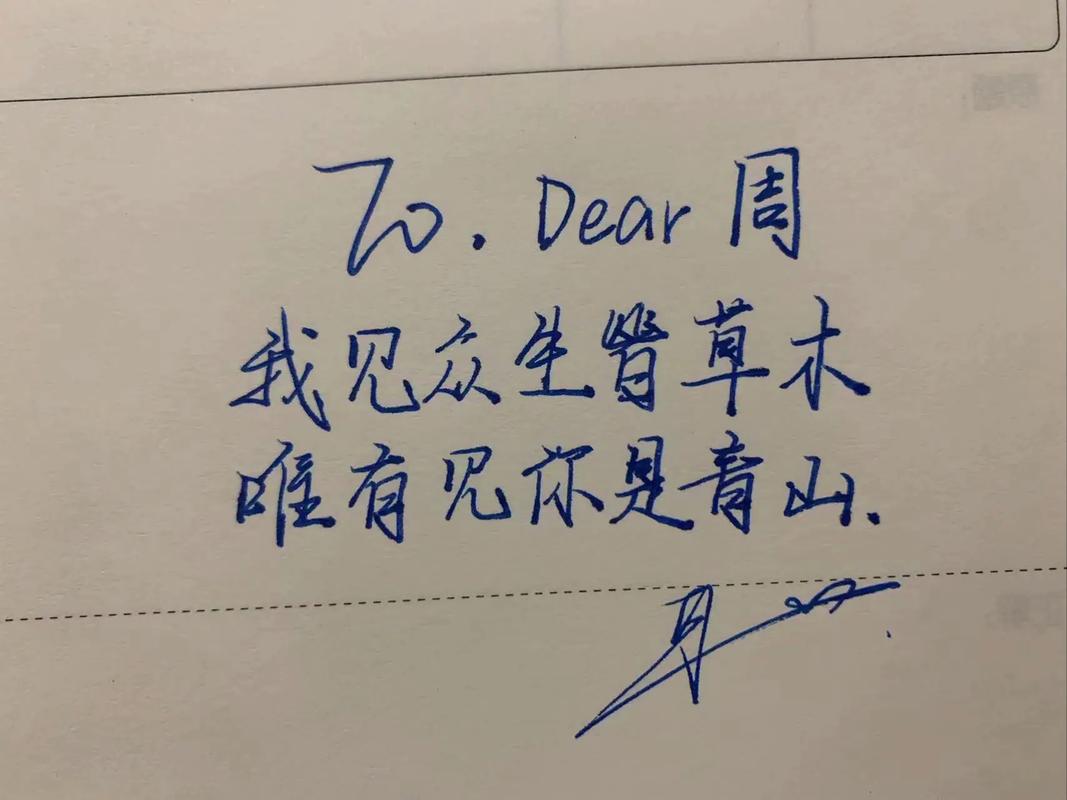 To. Dear 周
我见众生皆草木
唯有见你是青山.